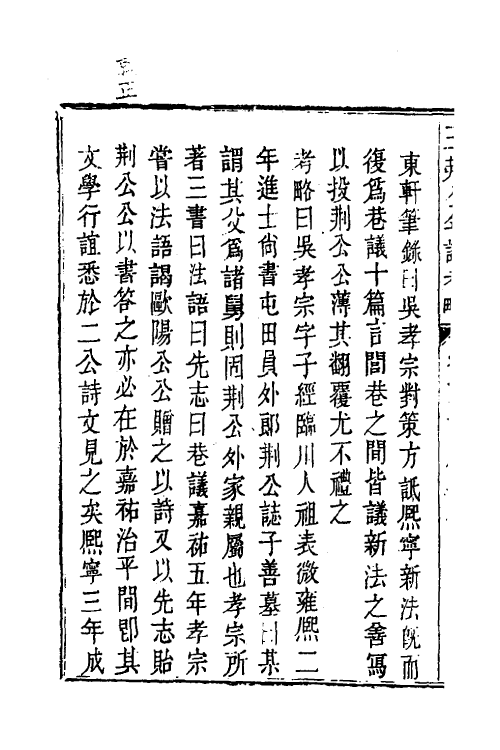 東軒筆錄曰吳孝宗對策方詆熙寧新法旣而
復爲巷議十篇言閭巷之間皆議新法之善寫
以投荆公公薄其翻覆尤不禮之
考略曰吳孝宗字子經臨川人祖表微雍熙二
年進士尙書屯田員外郞荆公誌子善墓曰某
謂其父爲諸舅則固荆公外家親屬也孝宗所
著三書曰法語曰先志曰巷議嘉祐五年孝宗
嘗以法語謁歐陽公公贈之以詩又以先志貽
荆公公以書答之亦必在於嘉祐治平間卽其
文學行誼悉於二公詩文見之矣熙寧三年成